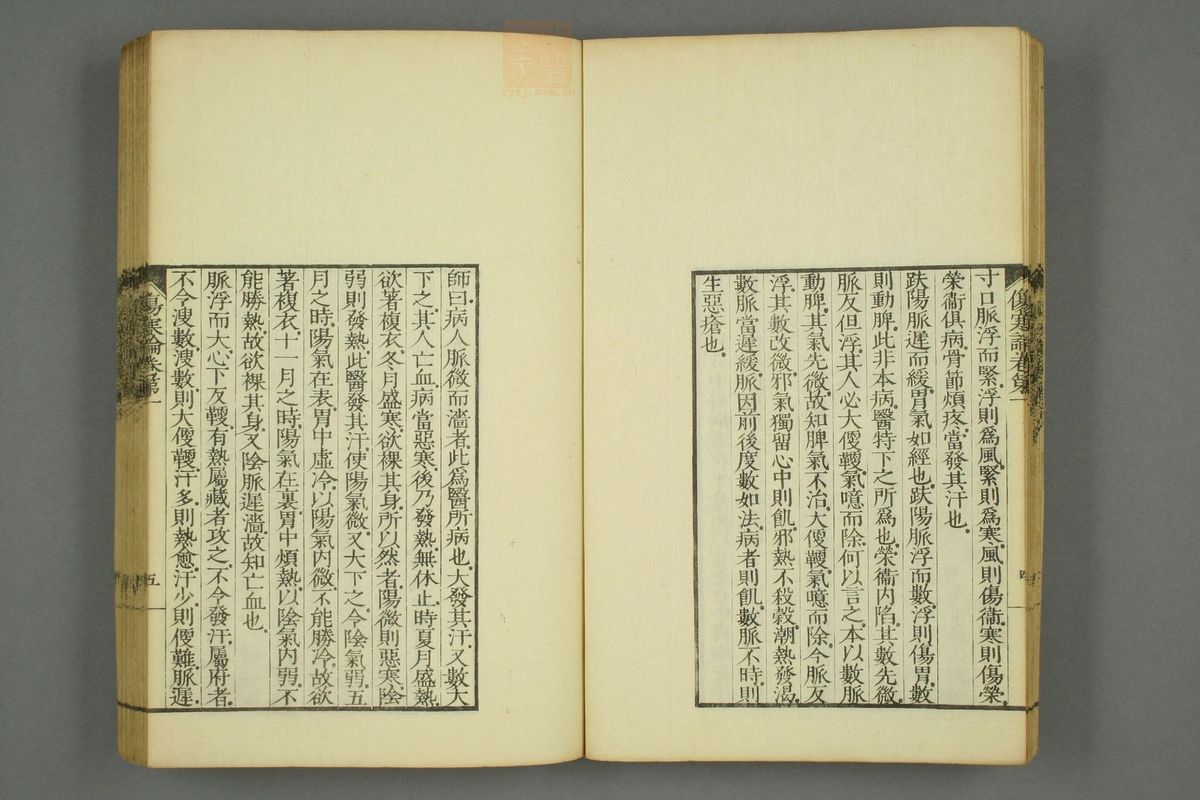 寸口脈浮而緊浮則爲風緊則爲寒風則傷衞寒則傷榮
榮衞俱病骨節煩疼當發其汗也
趺陽脈遲而緩胃氣如經也趺陽脈浮而數浮則傷胃數
則動脾此非本病醫特下之所爲也榮衞內陷其數先微
脈反但浮其人必大便鞕氣噫而除何以言之本以數脈
動脾其氣先微故知脾氣不治大便鞕氣噫而除今脈反
浮其數改微邪氣獨留心中則飢邪熱不殺穀潮熱發渴
數脈當遲緩脈因前後度數如法病者則飢數脈不時則
生惡瘡也
傷寒論卷第一
四
師曰病人脈微而濇者此爲醫所病也大發其汗又數大
下之其人亡血病當惡寒後乃發熱無休止時夏月盛熱
欲著複衣冬月盛寒欲裸其身所以然者陽微則惡寒陰
弱則發熱此醫發其汗使陽氣微又大下之令陰氣弱五
月之時陽氣在表胃中虛冷以陽氣內微不能勝冷故欲
著複衣十一月之時陽氣在裏胃中煩熱以陰氣內弱不
能勝熱故欲裸其身又陰脈遲濇故知亡血也
脈浮而大心下反鞕有熱屬藏者攻之不令發汗屬府者
不令溲數溲數則大便鞕汗多則熱愈汗少則便難脈遲
傷寒論卷第一
五
zysj.com.cn